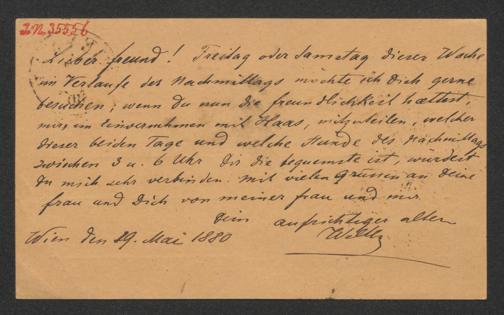 I.N. 35556
Lieber Freund! Freitag oder Samstag dieser Woche
im Verlaufe des Nachmittags möchte ich Dich gerne
besuchen; wenn du nun die Freundlichkeit hättest,
mir, im Einvernehmen mit Haas, mitzuteilen, welcher
dieser beiden Tage und welche Stunde des Nachmittags
zwischen 3 u. 6 Uhr Dir die bequemste ist, würdest
Du mich sehr verbinden. Mit vielen Grüssen an Deine
Frau und Dich von meiner Frau und mir
Dein aufrichtiger alter
Wien den 29. Mai 1880